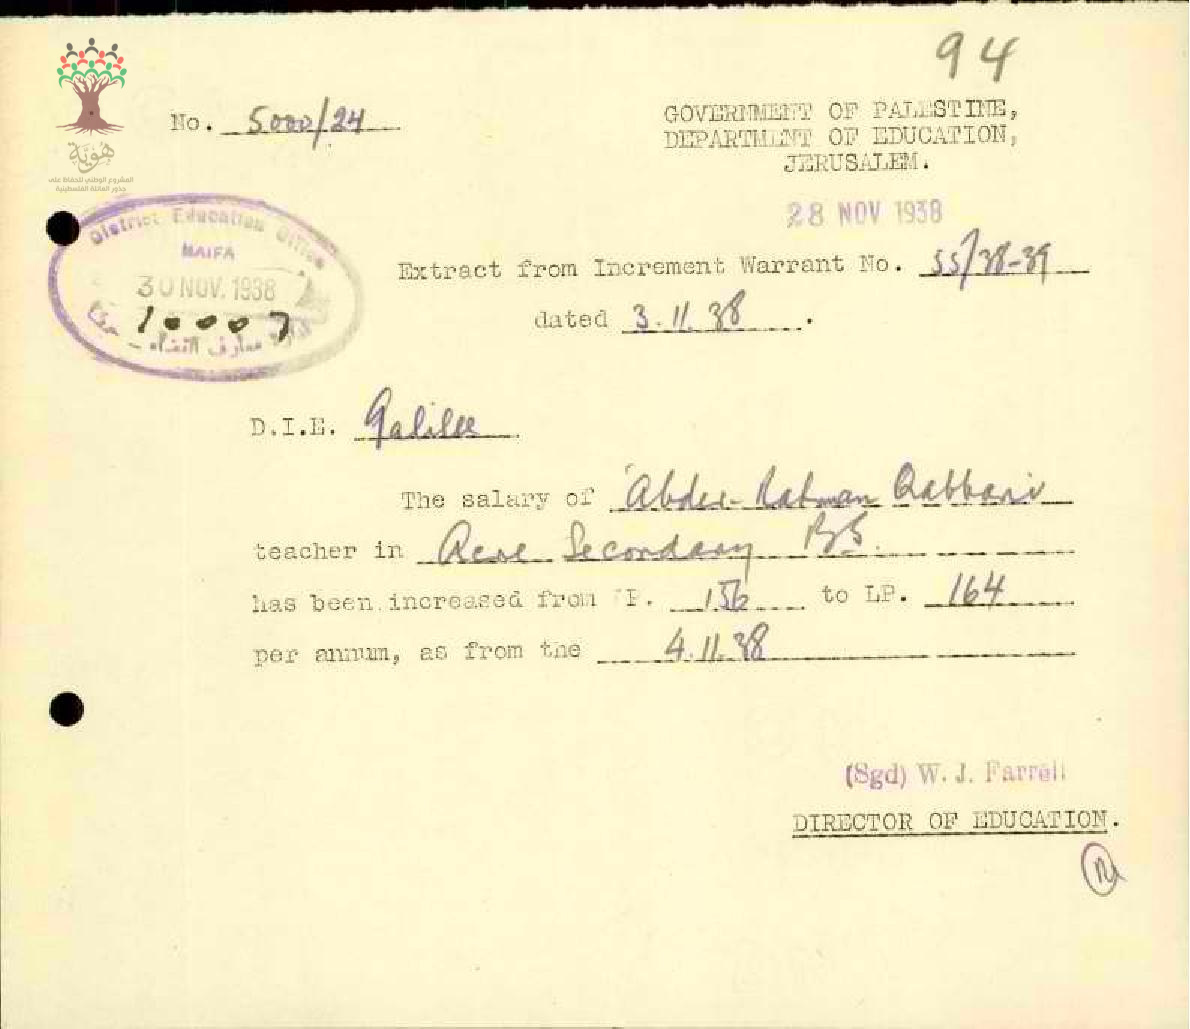 94
No. 5000/24
GOVERNMENT OF PALESTINE,
DEPARTMENT OF EDUCATION,
JERUSALEM.
هوية
المشروع الوطني للحفاظ على
جذور العائلة الفلسطينية
28 NOV 1938
District Education Office
HAIFA
30 NOV. 1938
10007
معارف اللواء
حيفا
Extract from Increment Warrant No. 55/38-39
dated 3.11.38.
D.I.E. Galilee
The salary of 'Abder-Rahman Qabbani
teacher in Acre Secondary B.S.
has been increased from LP. 156 to LP. 164
per annum, as from the 4.11.38
(Sgd) W. J. Farrell
DIRECTOR OF EDUCATION.